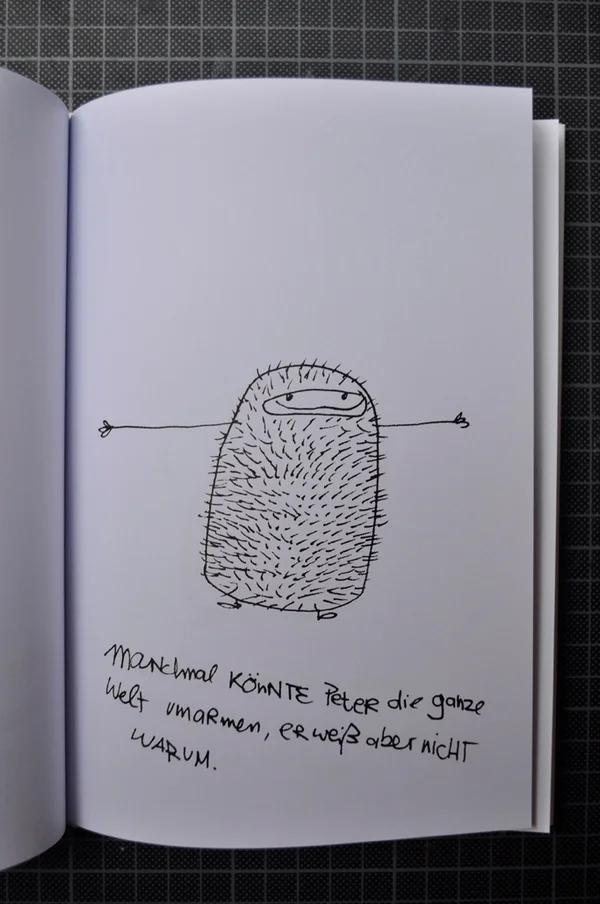 Manchmal könnte Peter die ganze
Welt umarmen, er weiß aber nicht
warum.